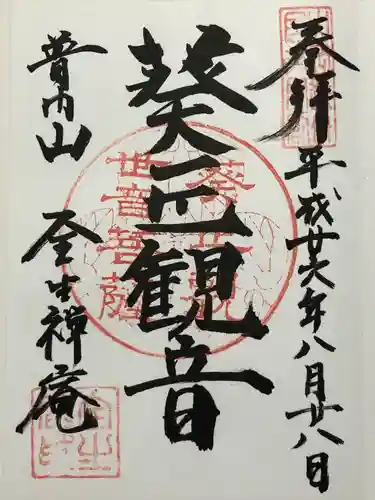 奉拝
平成廿六年八月廿八日
葵正観音
葵正観
世音菩薩
普門山
全生禅庵